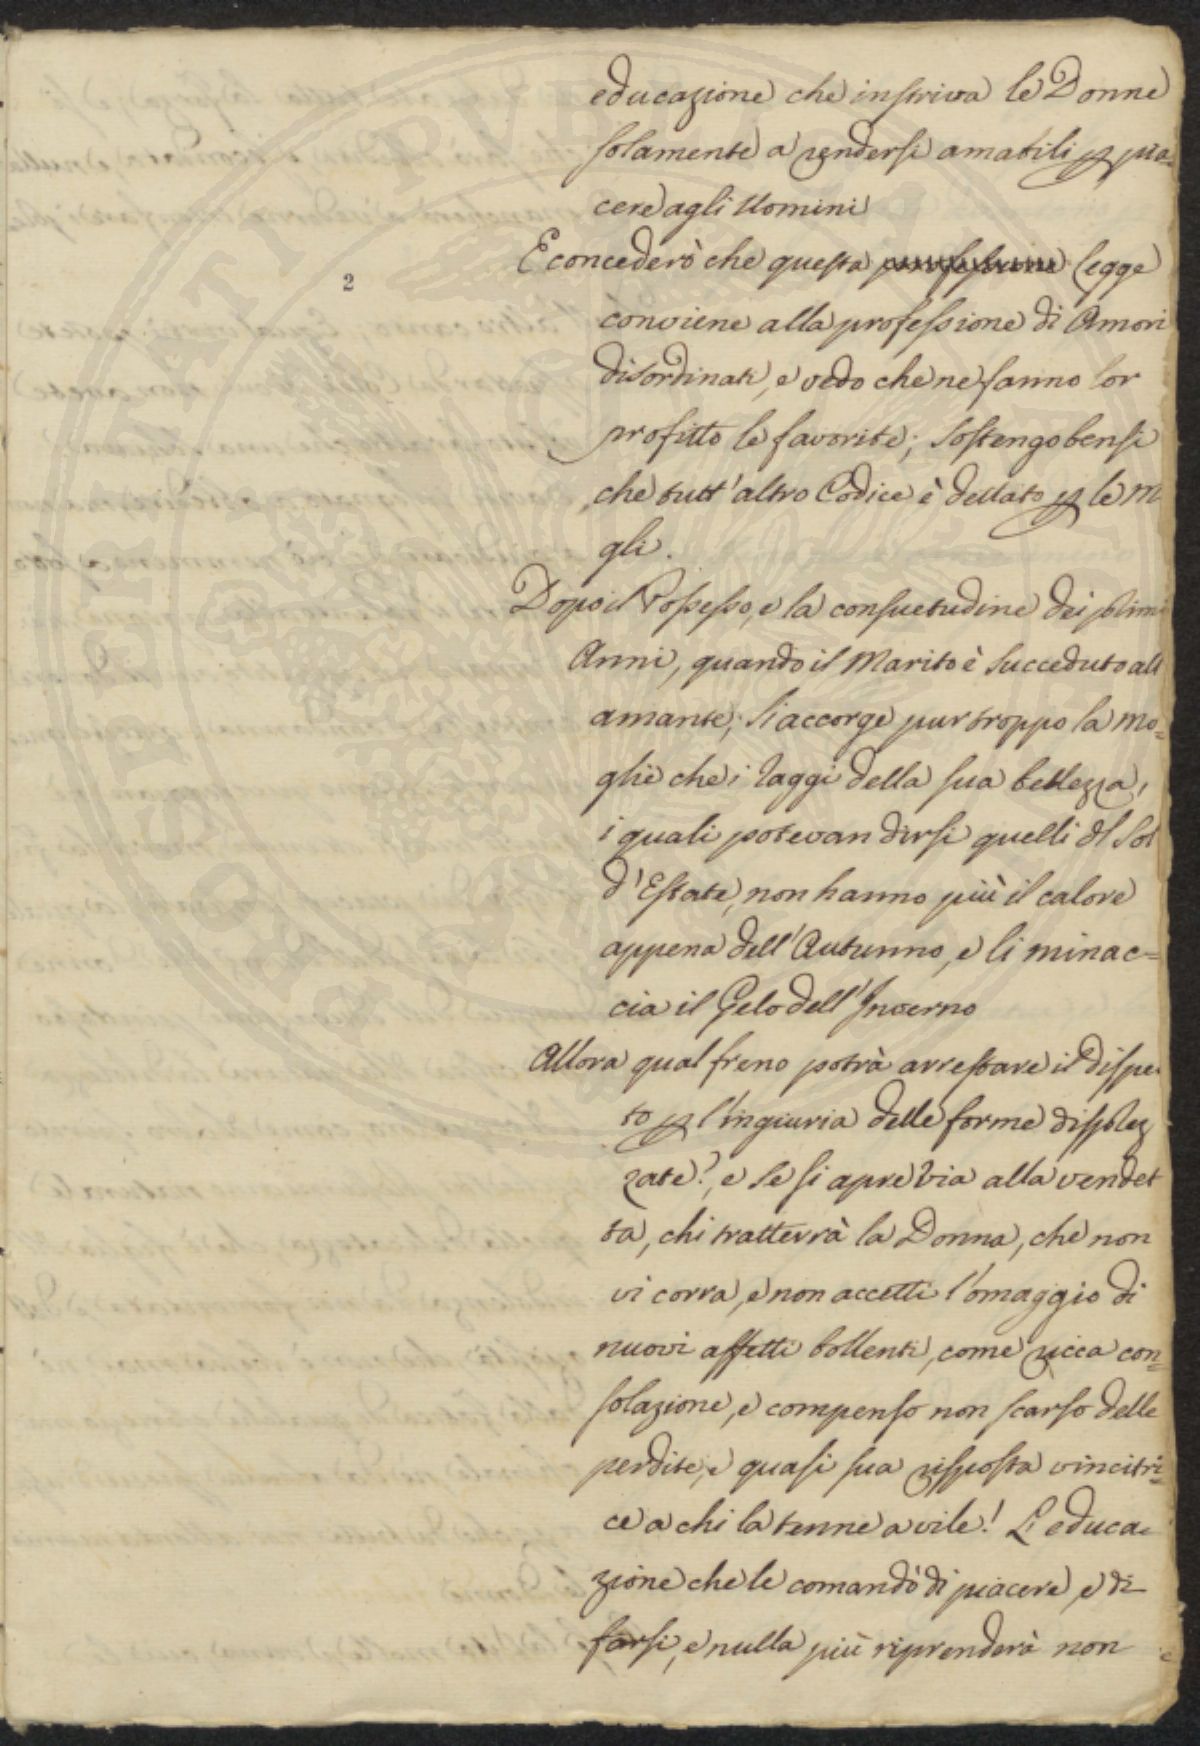 educazione che instriva le Donne
solamente a rendersi amabili per pia=
cere agli Uomini
E concederò che questa legge
2
conviene alla professione di Amori
disordinati, e vedo che ne fanno lor
profitto le favorite; sostengo bensi
che tutt'altro Codice è dettato per le M
gli.
Dopo il Possesso, e la consuetudine dei primi
Anni, quando il Marito è succeduto all
amante; s'accorge pur troppo la Mo=
glie che i raggi della sua bellezza,
i quali potevan dirsi quelli del Sol
d'Estate, non hanno più il calore
appena dell'Autunno, e li minac=
cia il Gelo dell'Inverno
Allora qual freno potrà arrestare il dispe
to per l'ingiuria delle forme disprez
zate?, e se si apre via alla vendet
ta, chi tratterrà la Donna, che non
vi corra, e non accetti l'omaggio di
nuovi affetti bollenti, come ricca con=
solazione, e compenso non scarso delle
perdite, e quasi sua risposta vincitri=
ce a chi la tenne a vile! L'educa=
zione che le comandò di piacere, e di
farsi, e nulla più riprenderà non